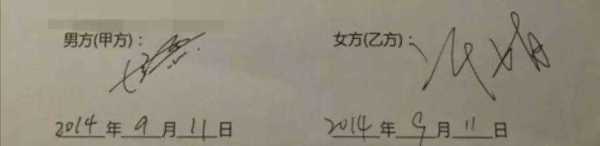 男方(甲方)： 女方(乙方)：
2014年9月11日 2014年9月11日